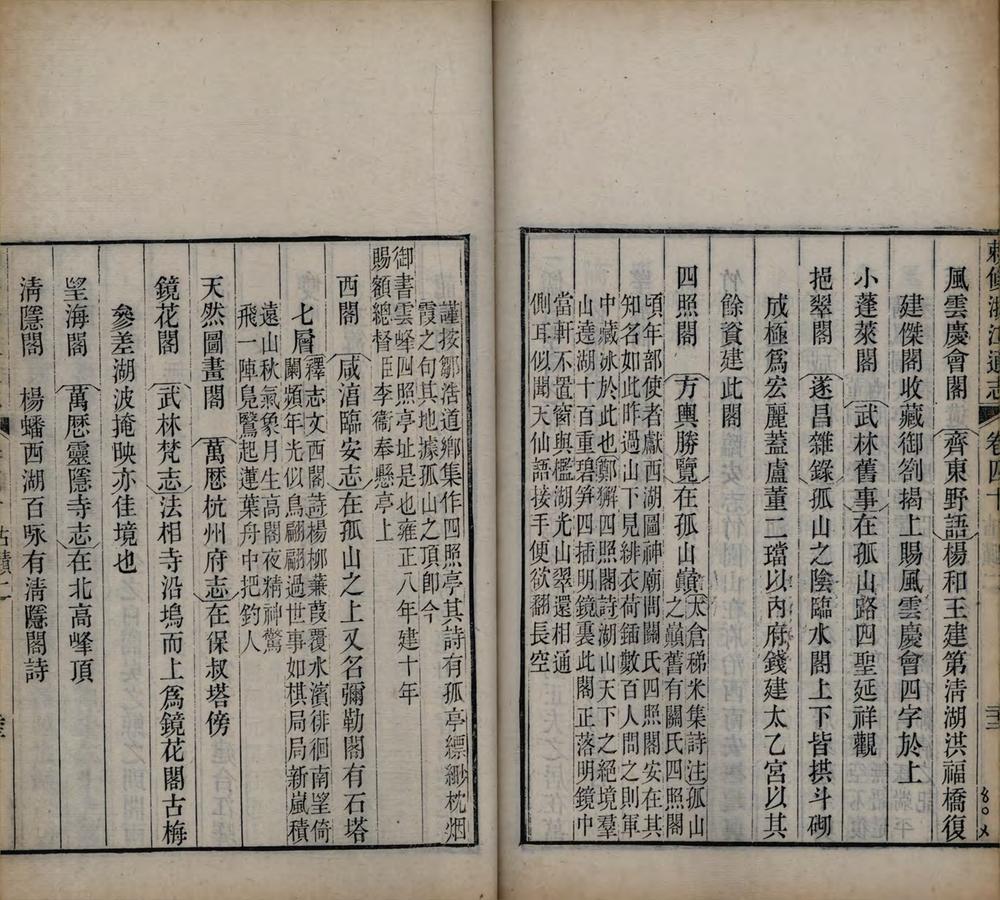 敕修浙江通志 卷四十 三
風雲慶會閣 齊東野語楊和王建第淸湖洪福橋復
建傑閣收藏御劄揭上賜風雲慶會四字於上
小蓬萊閣 武林舊事在孤山路四聖延祥觀
挹翠閣 遂昌雜錄孤山之陰臨水閣上下皆拱斗砌
成極爲宏麗蓋盧董二璫以內府錢建太乙宮以其
餘資建此閣
四照閣 方輿勝覽在孤山巔天倉稊米集詩注孤山
之巔舊有關氏四照閣
頃年部使者獻西湖圖神廟問關氏四照閣安在其
知名如此昨過山下見緋衣荷鍤數百人問之則軍
中藏冰於此也鄭獬四照閣詩湖山天下之絕境羣
山遶湖十百重碧笋四插明鏡裏此閣正落明鏡中
當軒不置窗與檻湖光山翠還相通
側耳似聞天仙語接手便欲翻長空
謹按鄒浩道鄕集作四照亭其詩有孤亭縹緲枕烟
霞之句其地據孤山之頂卽今
御書雲峰四照亭址是也雍正八年建十年
賜額總督臣李衞奉懸亭上
西閣 咸淳臨安志在孤山之上又名彌勒閣有石塔
七層釋志文西閣詩楊柳蒹葭覆水濱徘徊南望倚
闌頻年光似鳥翩翩過世事如棋局局新嵐積
遠山秋氣象月生高閣夜精神驚
飛一陣鳧鷖起蓮葉舟中把釣人
天然圖畫閣 萬歷杭州府志在保叔塔傍
鏡花閣 武林梵志法相寺沿塢而上爲鏡花閣古梅
參差湖波掩映亦佳境也
望海閣 萬歷靈隱寺志在北高峰頂
淸隱閣 楊蟠西湖百咏有淸隱閣詩
古蹟二